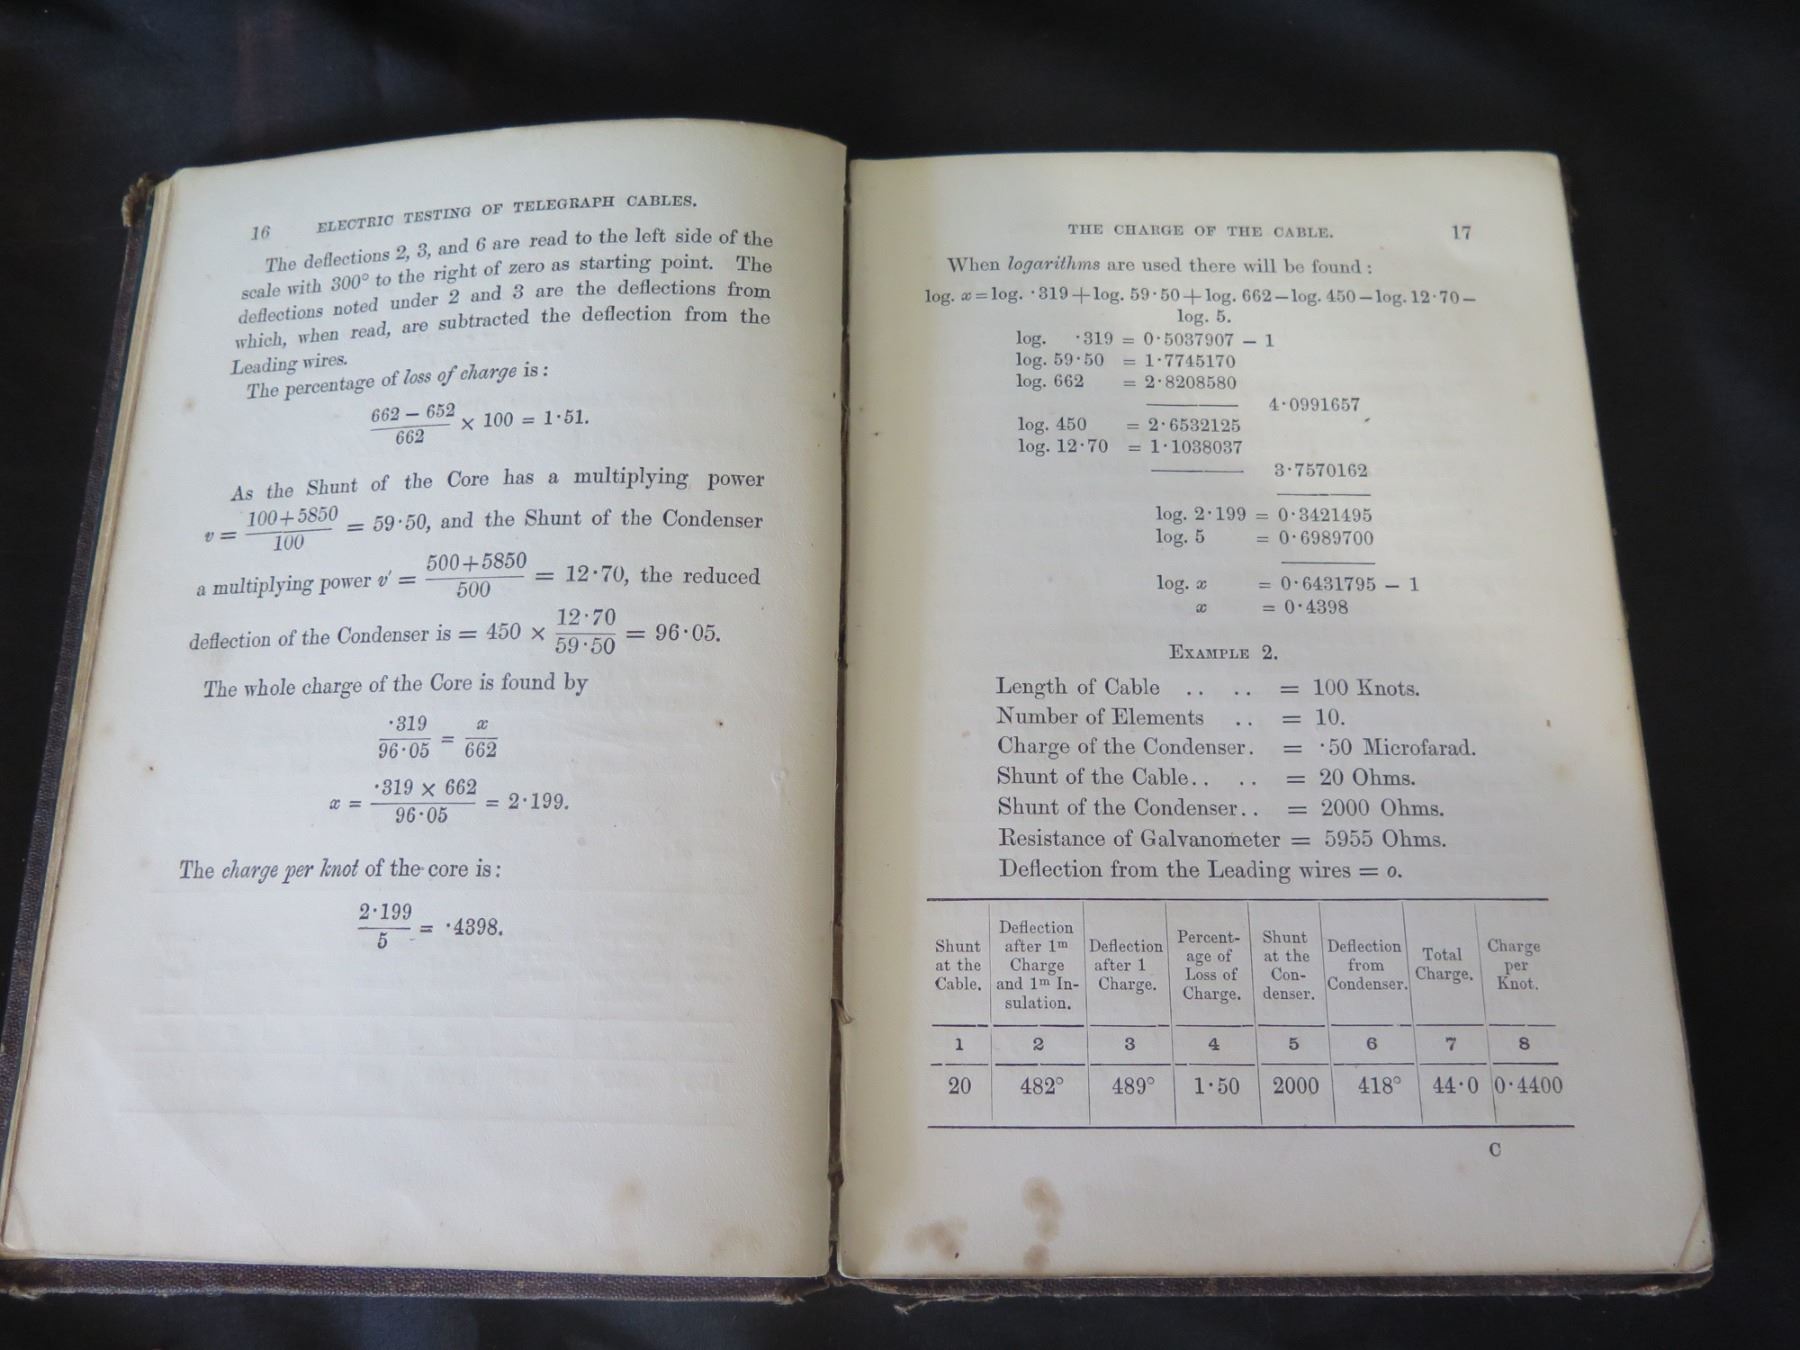 16 ELECTRIC TESTING OF TELEGRAPH CABLES.
The deflections 2, 3, and 6 are read to the left side of the
scale with 300° to the right of zero as starting point. The
deflections noted under 2 and 3 are the deflections from
which, when read, are subtracted the deflection from the
Leading wires.
The percentage of loss of charge is :
662 − 652
662
× 100 = 1·51.
As the Shunt of the Core has a multiplying power
v = 100+5850
100
= 59·50, and the Shunt of the Condenser
a multiplying power v′ = 500+5850
500
= 12·70, the reduced
deflection of the Condenser is = 450 × 12·70
59·50
= 96·05.
The whole charge of the Core is found by
·319
96·05
= x
662
x = ·319 × 662
96·05
= 2·199.
The charge per knot of the core is :
2·199
5
= ·4398.
THE CHARGE OF THE CABLE. 17
When logarithms are used there will be found :
log. x = log. ·319 + log. 59·50 + log. 662 − log. 450 − log. 12·70 −
log. 5.
log. ·319 = 0·5037907 − 1
log. 59·50 = 1·7745170
log. 662 = 2·8208580
4·0991657
log. 450 = 2·6532125
log. 12·70 = 1·1038037
3·7570162
log. 2·199 = 0·3421495
log. 5 = 0·6989700
log. x = 0·6431795 − 1
x = 0·4398
EXAMPLE 2.
Length of Cable .. .. = 100 Knots.
Number of Elements .. = 10.
Charge of the Condenser. = ·50 Microfarad.
Shunt of the Cable.. .. = 20 Ohms.
Shunt of the Condenser.. = 2000 Ohms.
Resistance of Galvanometer = 5955 Ohms.
Deflection from the Leading wires = o.
Shunt
at the
Cable.
Deflection
after 1m
Charge
and 1m In-
sulation.
Deflection
after 1
Charge.
Percent-
age of
Loss of
Charge.
Shunt
at the
Con-
denser.
Deflection
from
Condenser.
Total
Charge.
Charge
per
Knot.
1 2 3 4 5 6 7 8
20 482° 489° 1·50 2000 418° 44·0 0·4400
C